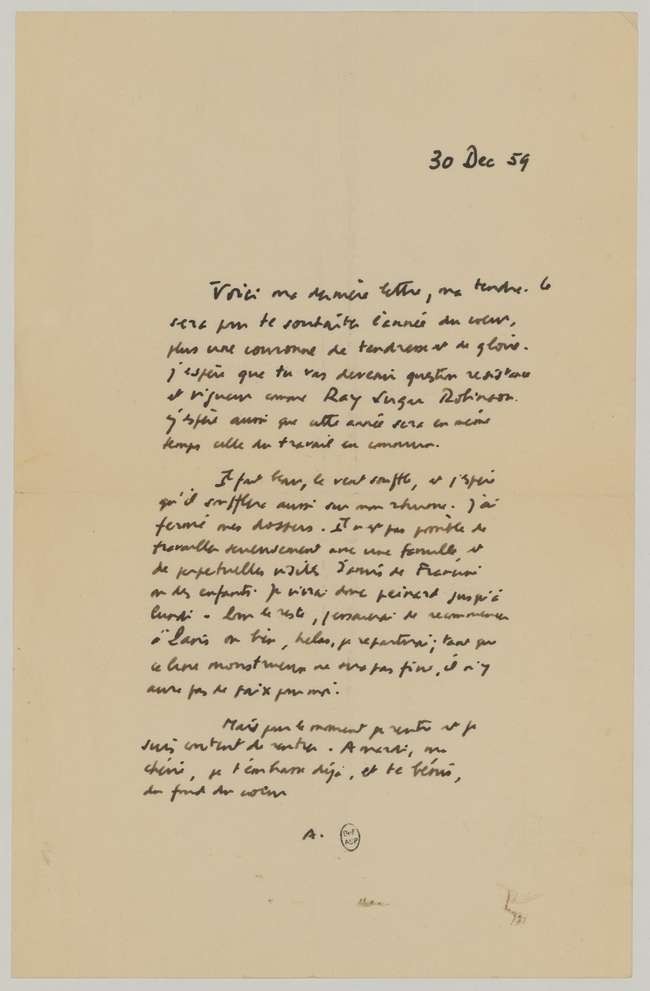 30 Dec 59
Voici ma dernière lettre, ma tendre. Ce
sera pour te souhaiter l'année du cœur,
plus une couronne de tendresse et de gloire.
J'espère que tu vas devenir question resistance
et vigueur comme Ray Sugar Robinson.
J'espère aussi que cette année sera en même
temps celle du travail en commun.
Il fait beau, le vent souffle, et j'espère
qu'il soufflera aussi sur mon rhume. J'ai
fermé mes dossiers. Il n'est pas possible de
travailler sérieusement avec une famille et
de perpetuelles visites d'amis de Francine
ou des enfants. Je vivrai donc peinard jusqu'à
lundi. Pour le reste, j'essaierai de recommencer
à Paris ou bien, hélas, je repartirai; tant que
ce livre monstrueux ne sera pas fini, il n'y
aura pas de paix pour moi.
Mais pour le moment je rentre et je
suis content de rentrer. A mardi, ma
chérie, je t'embrasse déjà, et te bénis,
du fond du cœur
A.
BnF
ASP